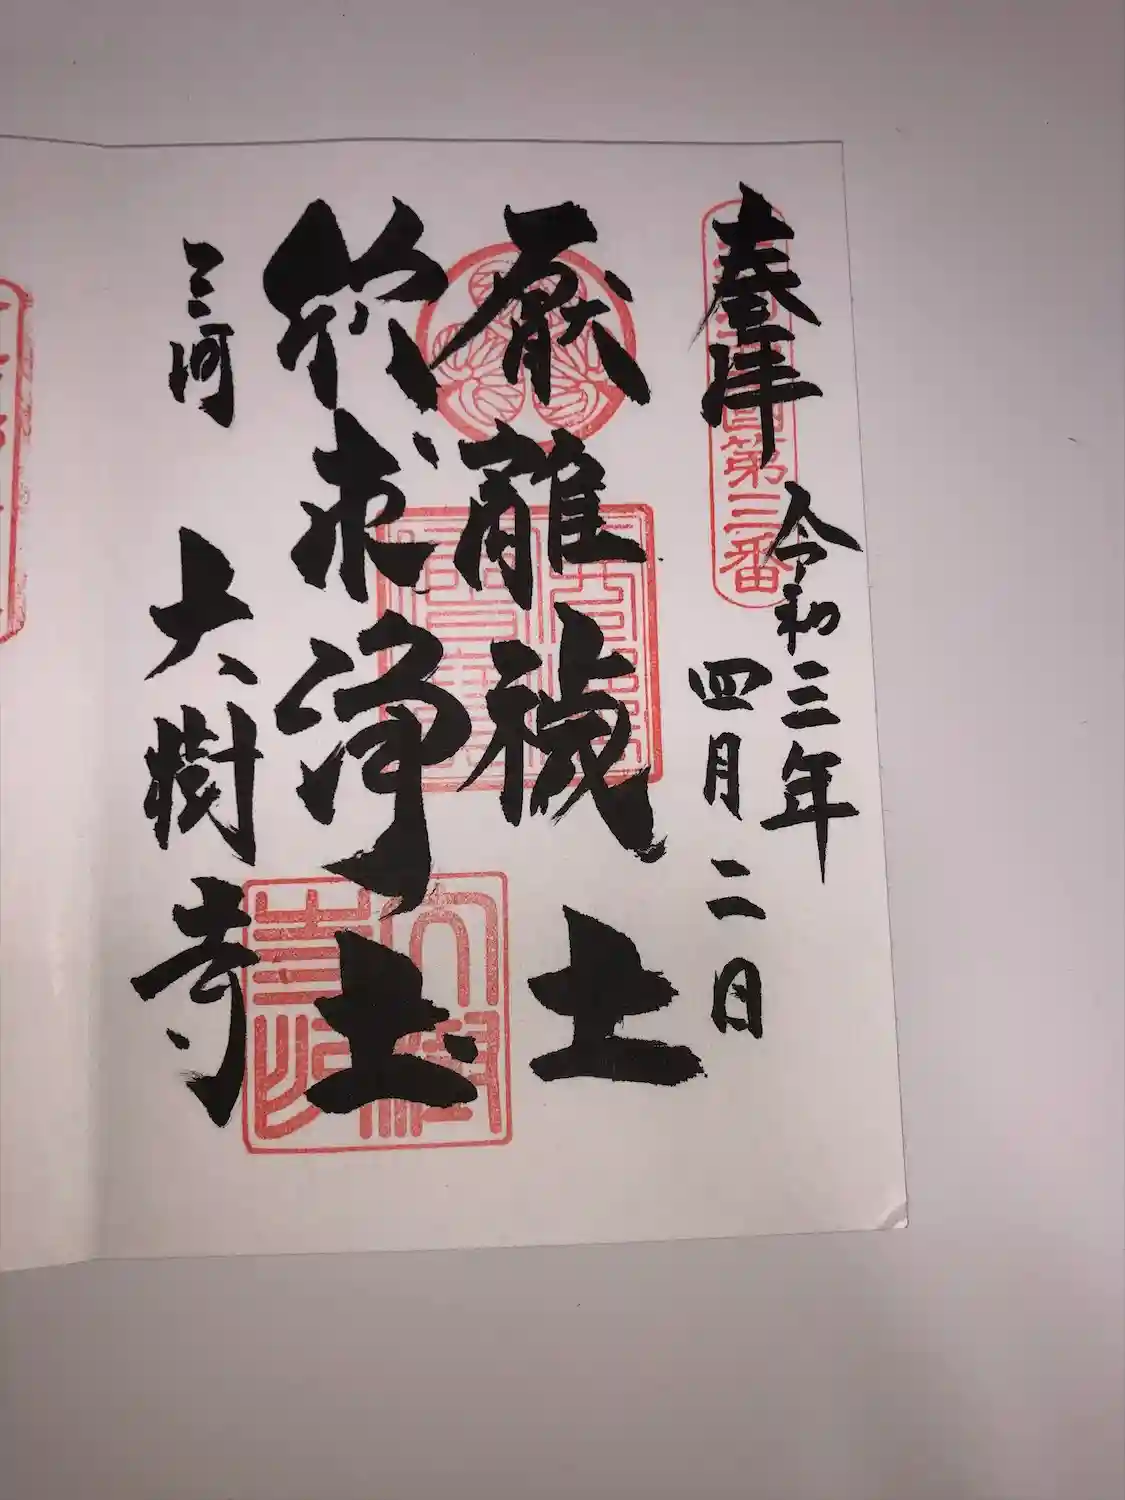 奉拝
令和三年
四月二日
厭離穢土
欣求浄土
三河
大樹寺
第三番